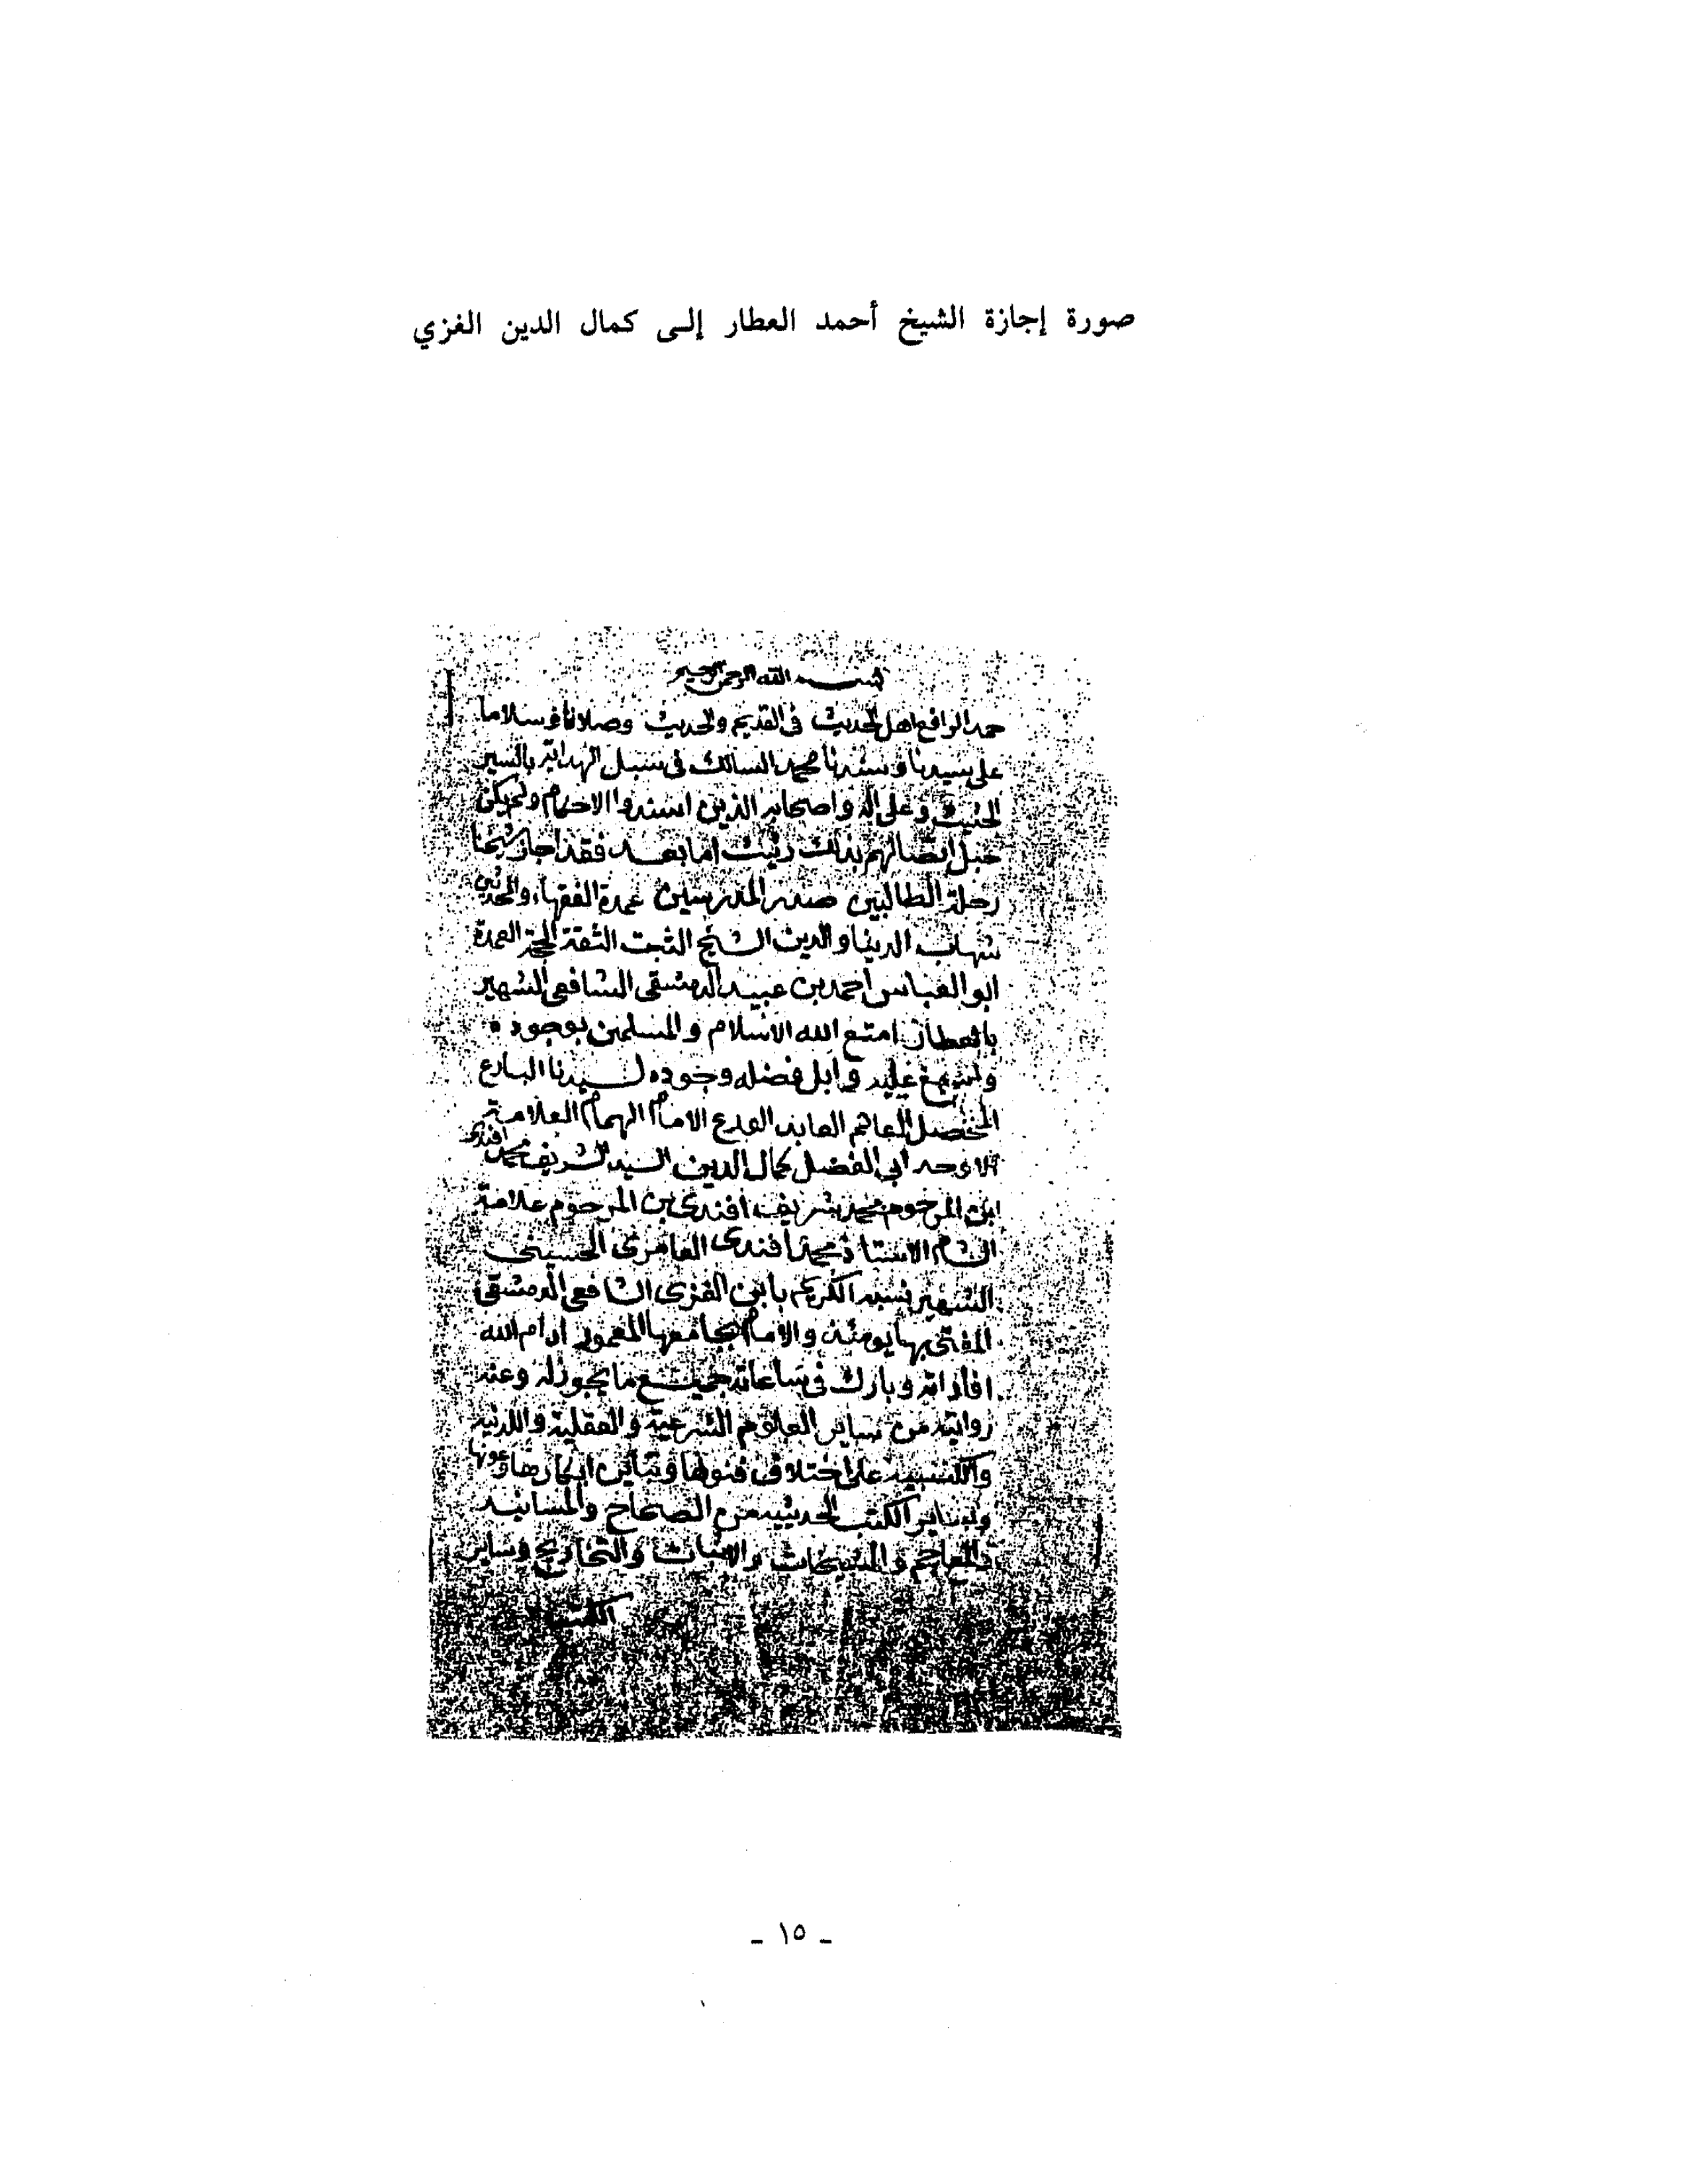 صورة إجازة الشيخ أحمد العطار إلى كمال الدين الغزي
بسم الله الرحمن الرحيم
حمدا لرافع اهل الحديث فى القديم والحديث وصلاة وسلاما
على سيدنا وسندنا محمد السالك فى سبيل الهداية بالسير
الحثيث وعلى اله واصحابه الذين اسندوا الاحكام ولم يكن
حبل اتصالهم بذلك رثيث اما بعد فقد اجاز شيخنا
رحلة الطالبين صدر المدرسين عمدة الفقهاء والمحدثين
شهاب الدنيا والدين الشيخ الثبت الثقة الحجة العمدة
ابو العباس احمد بن عبيد الدمشقى الشافعى الشهير
بالعطار امتع الله الاسلام والمسلمين بوجوده
عليه وابل فضله وجوده لسيدنا البارع
العالم العابد الورع الامام الهمام العلامة
الاوحد ابى الفضل كمال الدين السيد الشريف محمد افندى
ابن المرحوم محمد شريف افندى بن المرحوم علامة
الشام الاستاذ محمد افندى العامرى الحسينى
الشهير نسبه الكريم بابن الغزى الشافعى الدمشقى
المفتى بها يومئذ والامام بجامعها المعمور ادام الله
افاداته وبارك فى ساعاته جميع ما يجوز له وعنه
روايته من ساير العلوم الشرعية والعقلية واللدنية
والكسبية على اختلاف فنونها وتباين ابكارها وعونها
وساير الكتب الحديثية من الصحاح والمسانيد
والمعاجم والمشيخات والاثبات والتخاريج وساير
الكتب
- ١٥ -